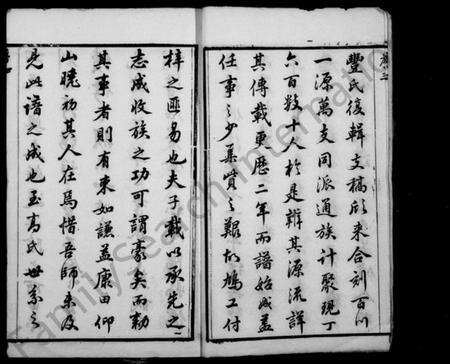 豐氏復輯支稿欣来合刻百川
一源萬支同派通族計聚現丁
六百数十人於是辑其源流詳
其傳載更歷二年而譜始成蓋
任事之少集貲之艱加鳩工付
梓之匪易也夫子載以承先之
志成收族之功可謂豪矣而勷
其事者則有東如謙益康田仰
山曉初其人在焉惜吾師未及
見此譜之成也至高氏世系之
FamilySearch International